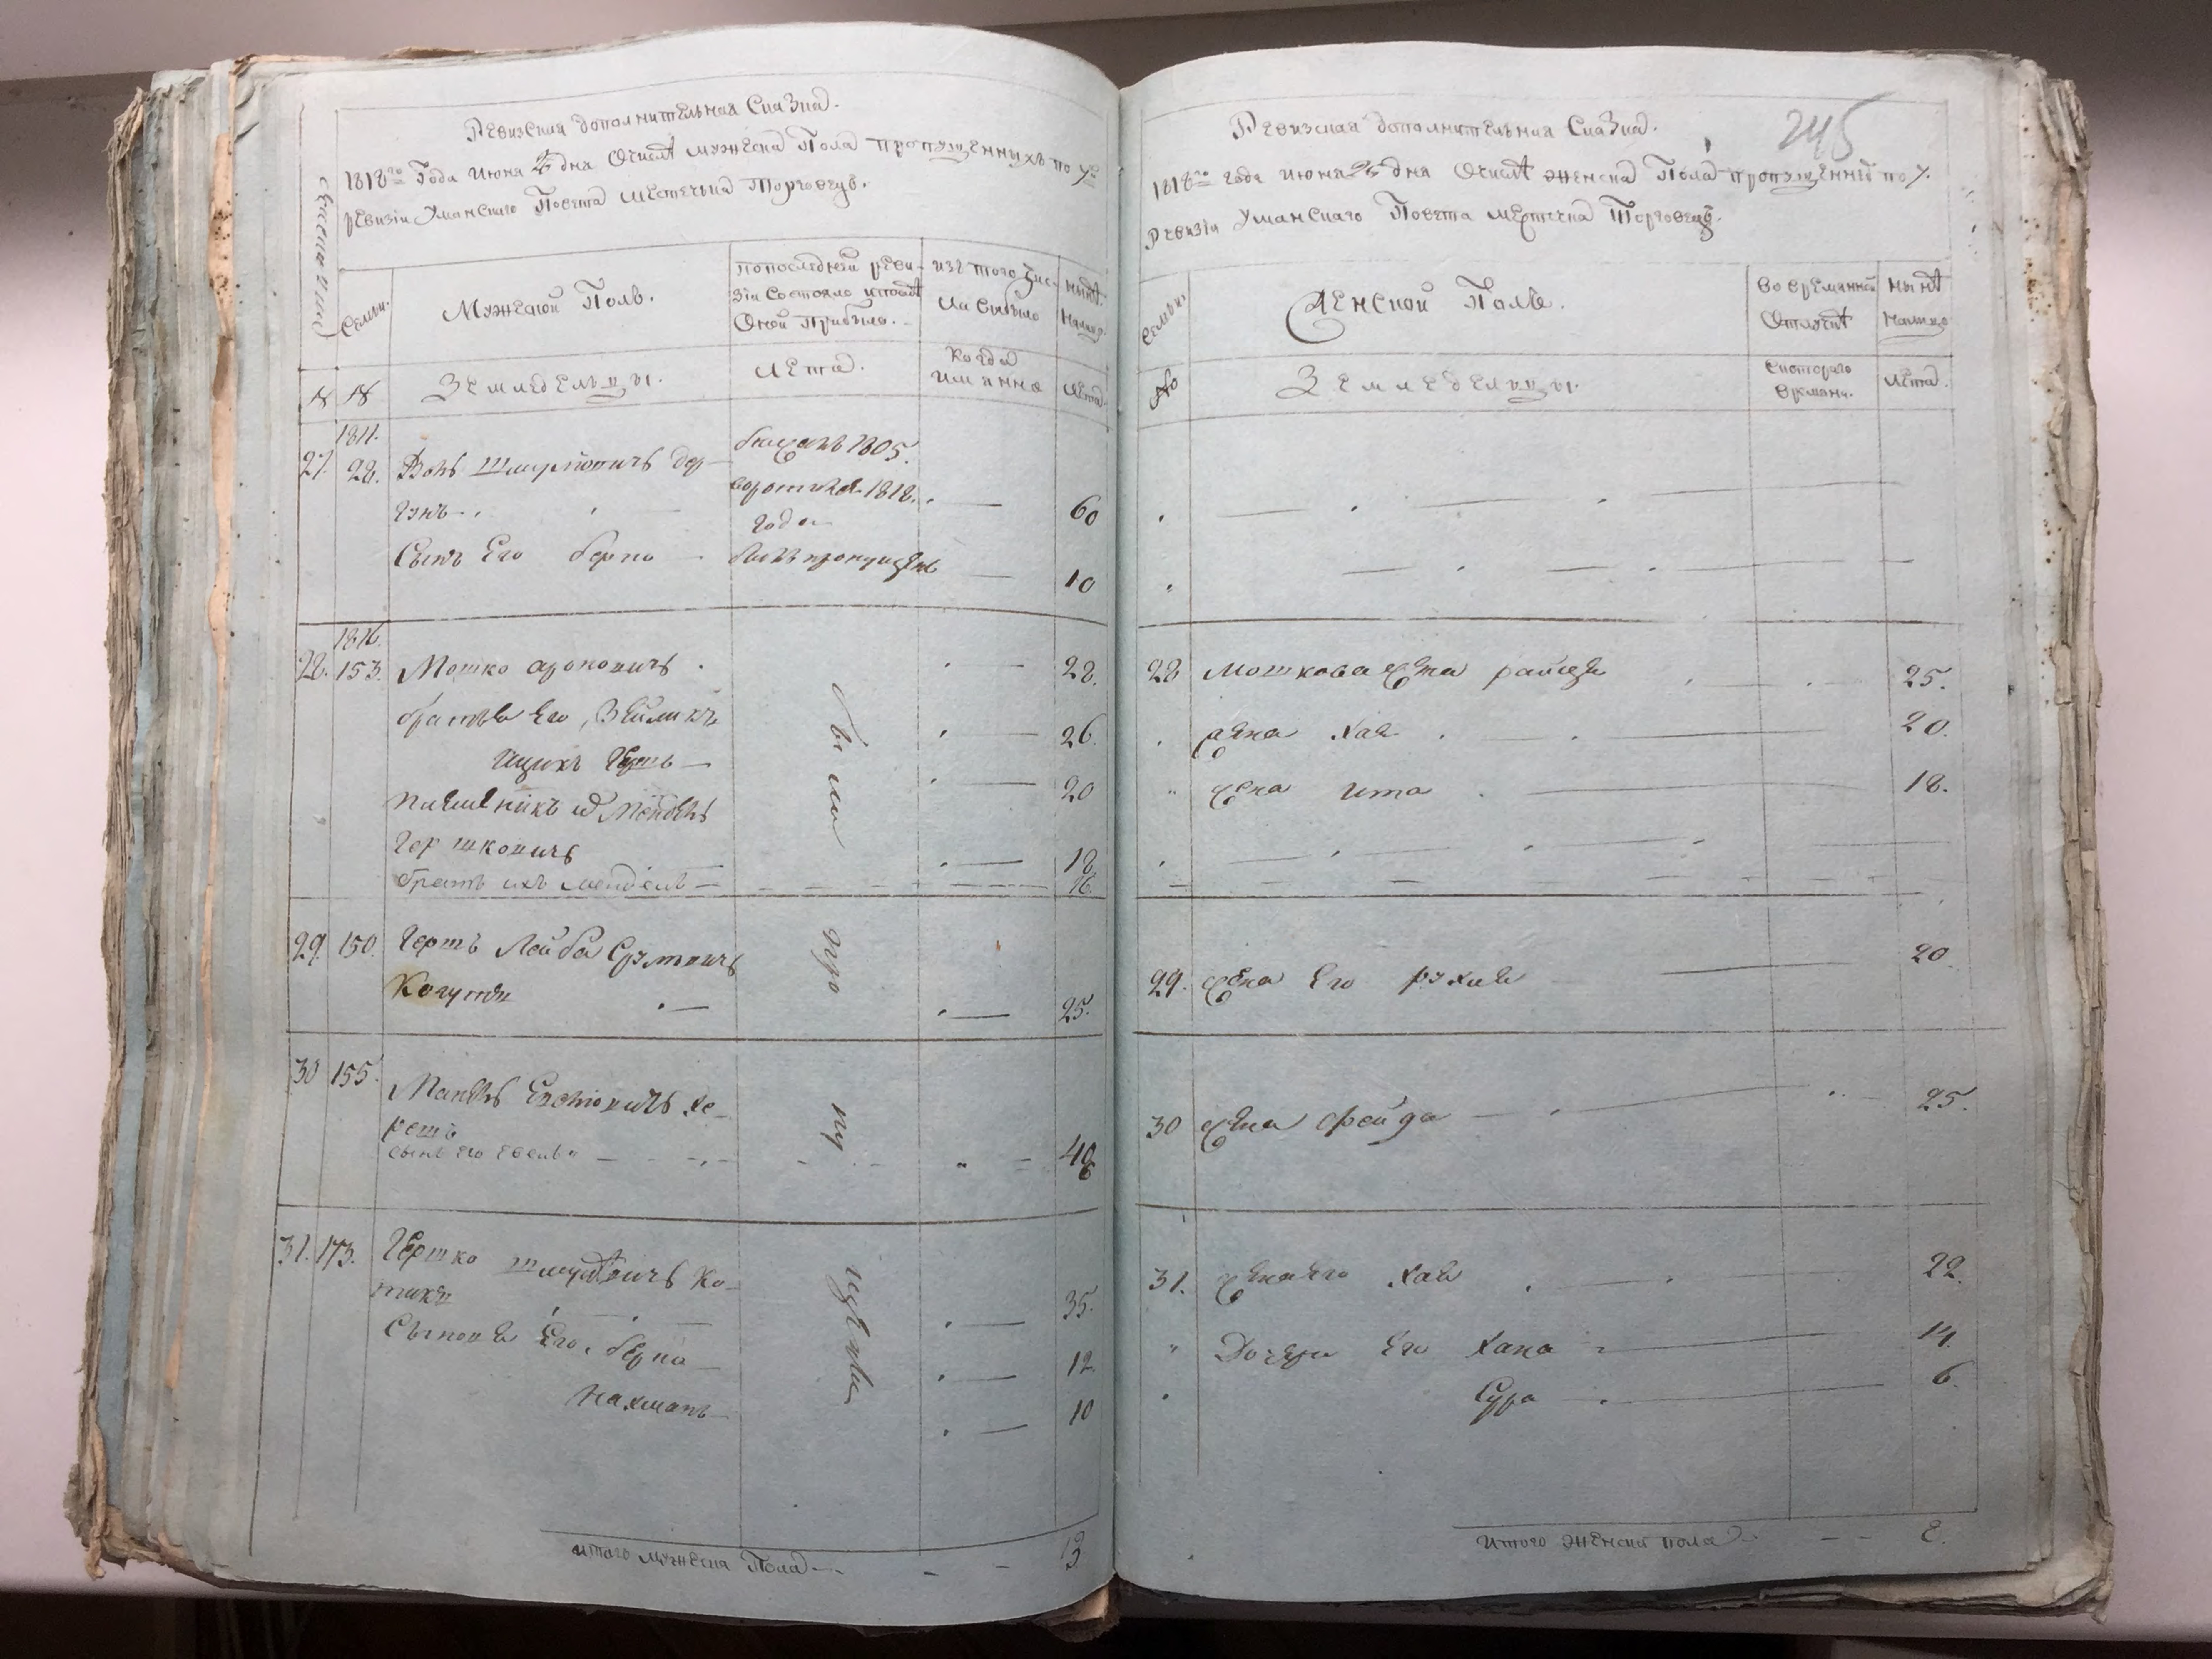 Ревизская дополнительная Сказка.
1818го Года июня 25 дня О числѣ мужеска Пола пропущенныхъ по 7й
ревизіи Уманскаго Повета местечка Торговецъ.
Семьи.
Мужеской Полъ.
попоследней реви-
зіи Состояло ипослѣ
Оной Прибыло.
изъ того Чис-
ла Выбыло
нынѣ
Налицо
№ №
Земледельцы.
Лета.
Когда
имянно
Лета.
1811.
27. 28.
Шмулiовичъ
бежалъ 1805.
воротился 1818.
года
60
Сынъ Его Берко
былъ пропущенъ
10
1816.
28. 153. Мошко Ароновичъ 28.
братья Его, Зейликъ 26.
Ицикъ Гершъ 20
племѣнникъ
Гершковичъ 18
братъ ихъ Мендель 16.
были
29. 150. Гершъ Лейба Срулевичъ
25.
про
30 155.
сынъ его
пу
31. 173. Гершко Шмулевичъ Ко-
тикъ 35.
Сыновья Его, Берко 12.
Нахманъ 10
щены
итого мужеска Пола 13
245
Ревизская дополнительная Сказка.
1818го года июня 25 дня О числѣ женска Пола пропущенной по 7.
Ревизіи Уманскаго Повета местечка Торговецъ.
Семьи.
Женской Полъ.
Во временной
Отлучкѣ
нынѣ
налицо
№
Земледельцы.
Скотораго
времени.
Лета.
28 Мошкова жена 25.
жена Хая 20.
жена Ита 18.
29. жена Его Рухля 20
30 жена Фейга 25.
31. жена его Хая 22.
Дочери Его Хана 14.
Сура 6.
Итого женска пола 8.